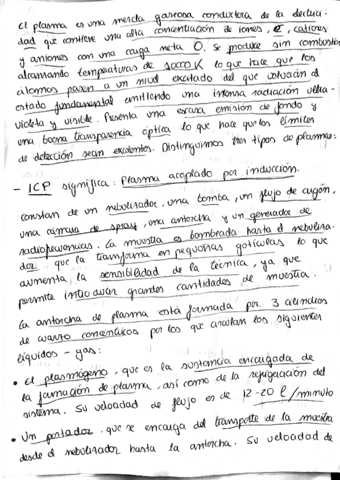 el plasma es una mezcla gaseosa conductora de la electrici-
dad que contiene una alta concentración de iones, e⁻, cationes
y aniones con una carga neta 0. Se produce sin combustión
alcanzando temperaturas de 10000 K lo que hace que los
átomos pasen a un nivel excitado del que vuelven al
estado fundamental emitiendo una intensa radiación ultra-
violeta y visible. Presenta una escasa emisión de fondo y
una buena transparencia óptica lo que hace que los límites
de detección sean excelentes. Distinguimos tres tipos de plasmas:
- ICP significa: Plasma acoplado por inducción.
constan de un nebulizador, una bomba, un flujo de argón,
una cámara de spray, una antorcha y un generador de
radiofrecuencias. La muestra es bombeada hasta el nebuliza-
dor que la transforma en pequeñas gotículas lo que
aumenta la sensibilidad de la técnica, ya que
permite introducir grandes cantidades de muestra.
La antorcha de plasma está formada por 3 cilindros
de cuarzo concéntricos por los que circulan los siguientes
líquidos - gas:
• el plasmógeno, que es la sustancia encargada de
la formación de plasma, así como de la refrigeración del
sistema. Su velocidad de flujo es de 12-20 l/minuto
• Un portador, que se encarga del transporte de la muestra
desde el nebulizador hasta la antorcha. Su velocidad de